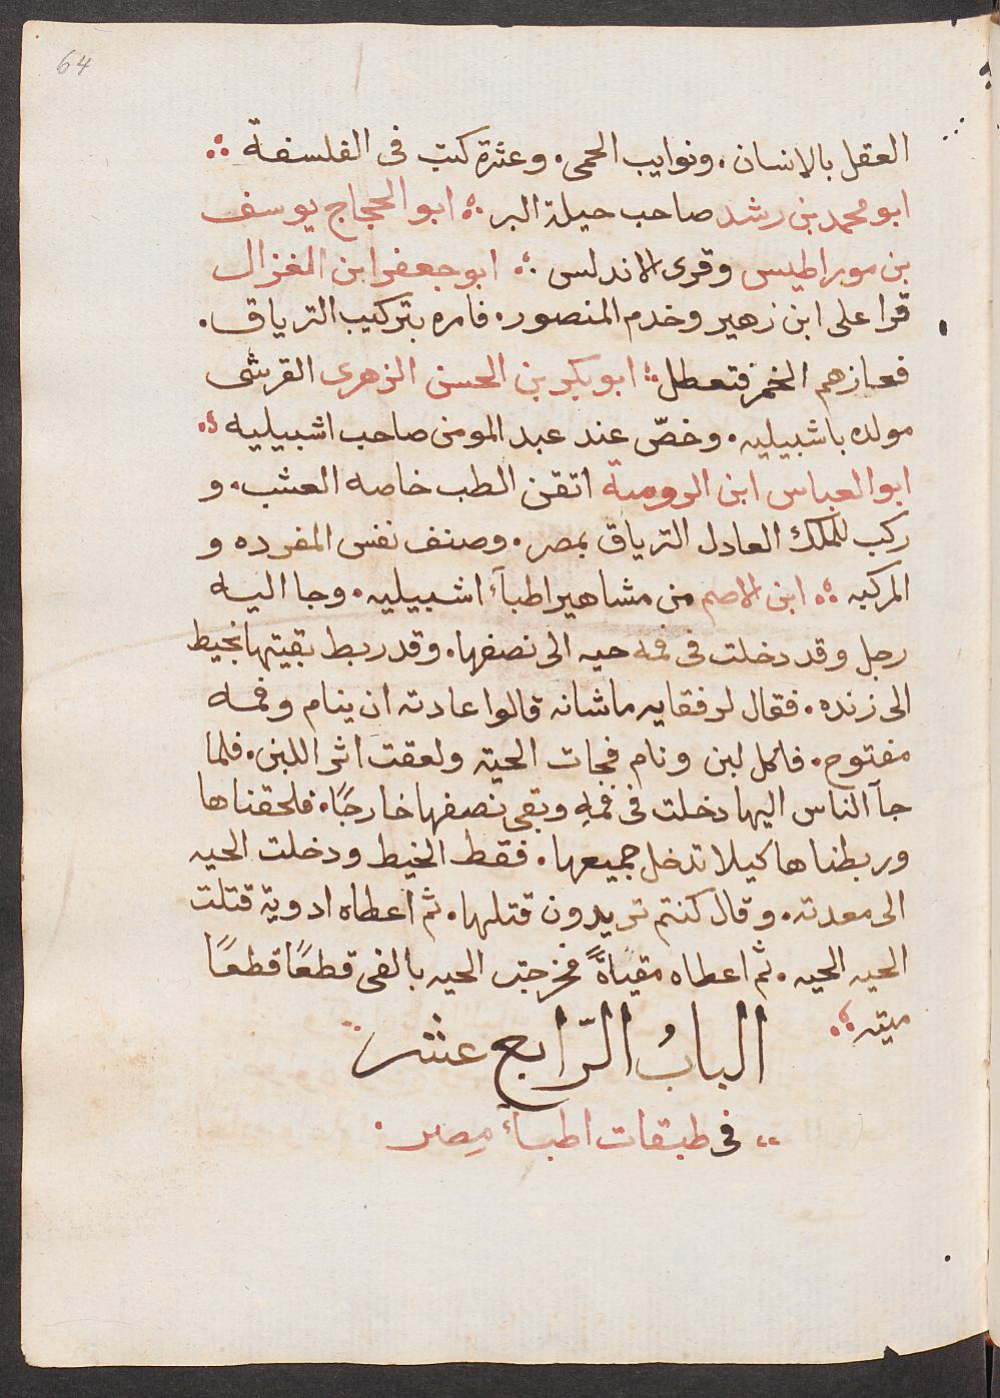 64
العقل بالانسان. ونوايب الحمى. وعشرة كتب فى الفلسفة
ابو محمد بن رشد صاحب حيلة البر ابو الحجاج يوسف
بن موبراطيس وقرى الاندلس ابو جعفر ابن الغزال
قرا على ابن زهير وخدم المنصور. فامره بتركيب الترياق.
فعازهم الخمر فتعطل ابو بكر بن الحسن الزهرى القرشى
مولده باشبيليه. وخصّ عند عبد المومن صاحب اشبيليه
ابو العباس ابن الرومية اتقن الطب خاصه العشب. و
ركب للملك العادل الترياق بمصر. وصنف نفس المفرده و
المركبه ابن الاصم من مشاهير اطبآء اشبيليه. وجا اليه
رجل وقد دخلت فى فمه حيه الى نصفها. وقد ربط بقيتها بخيط
الى زنده. فقال لرفقايه ما شانه قالوا عادته ان ينام وفمه
مفتوح. فاكل لبن ونام فجات الحيّه ولعقت اثر اللبن. فلما
جآ الناس اليها دخلت فى فمهِ وبقى نصفها خارجًا. فلحقناها
وربطناها كيلا تدخل جميعها. فقط الخيط ودخلت الحيه
الى معدته. وقال كنتم تريدون قتلها. ثم اعطاه ادوية قتلت
الحيه الحيه. ثم اعطاه مقياةً فخرجت الحيه بالقى قطعًا قطعًا
ميته
البابُ الرّابع عشر
فى طبقات اطبآء مِصر.